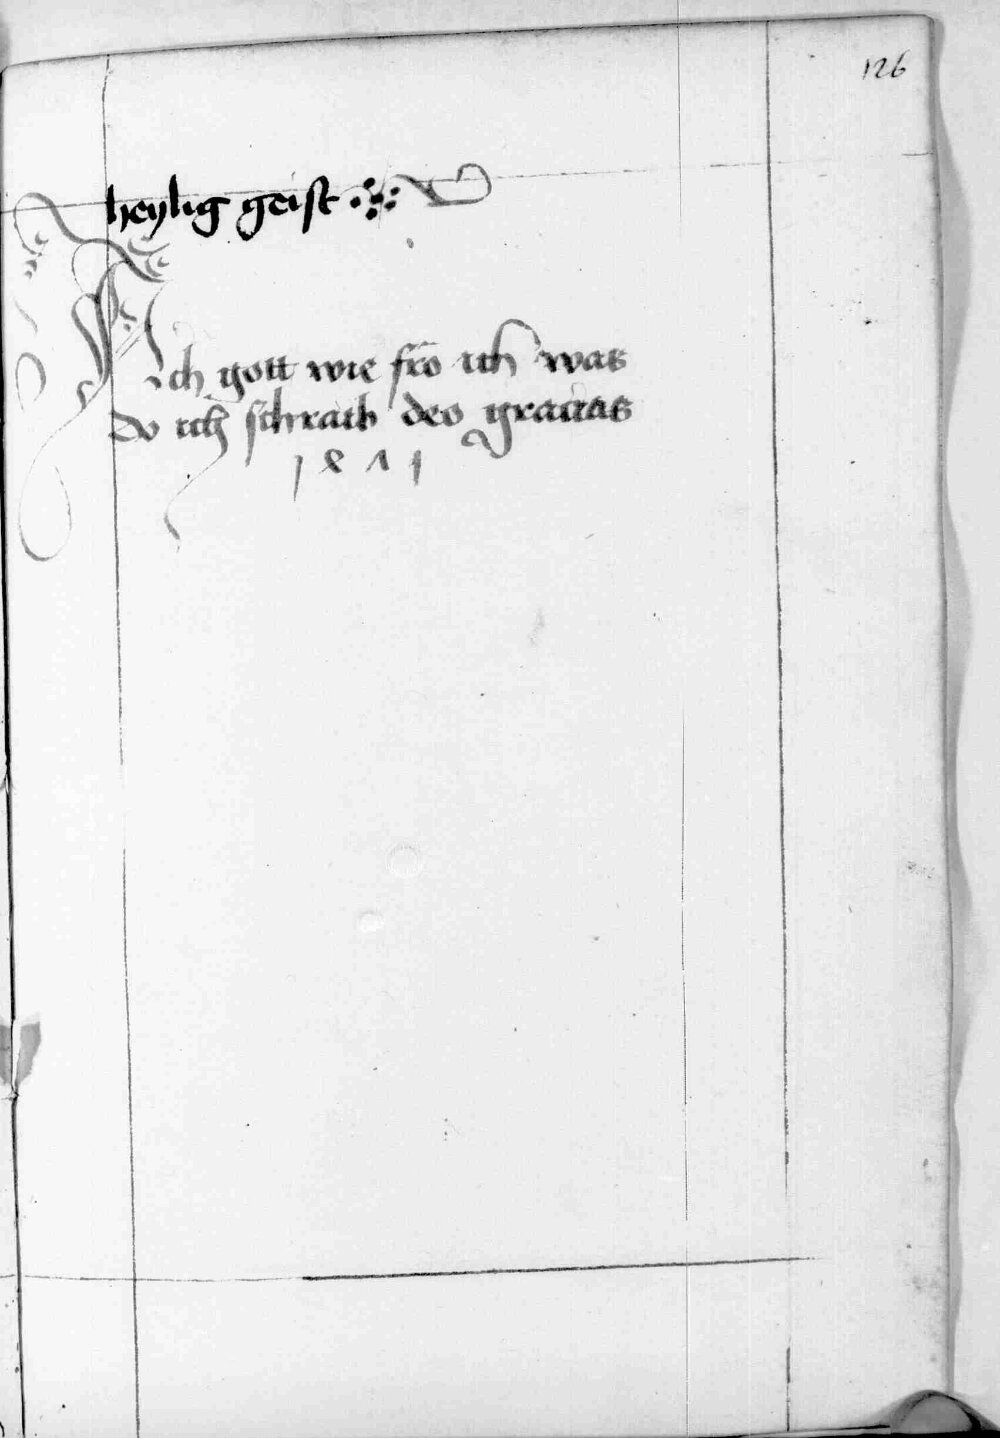 126
heylig geist
Ach gott wie fro ich was
do ich schraib deo gracias
1 8 Λ 1